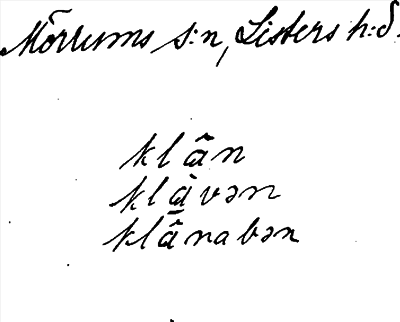 Mörrums s:n, Listers h:d.
klân
klàvən
klânabən